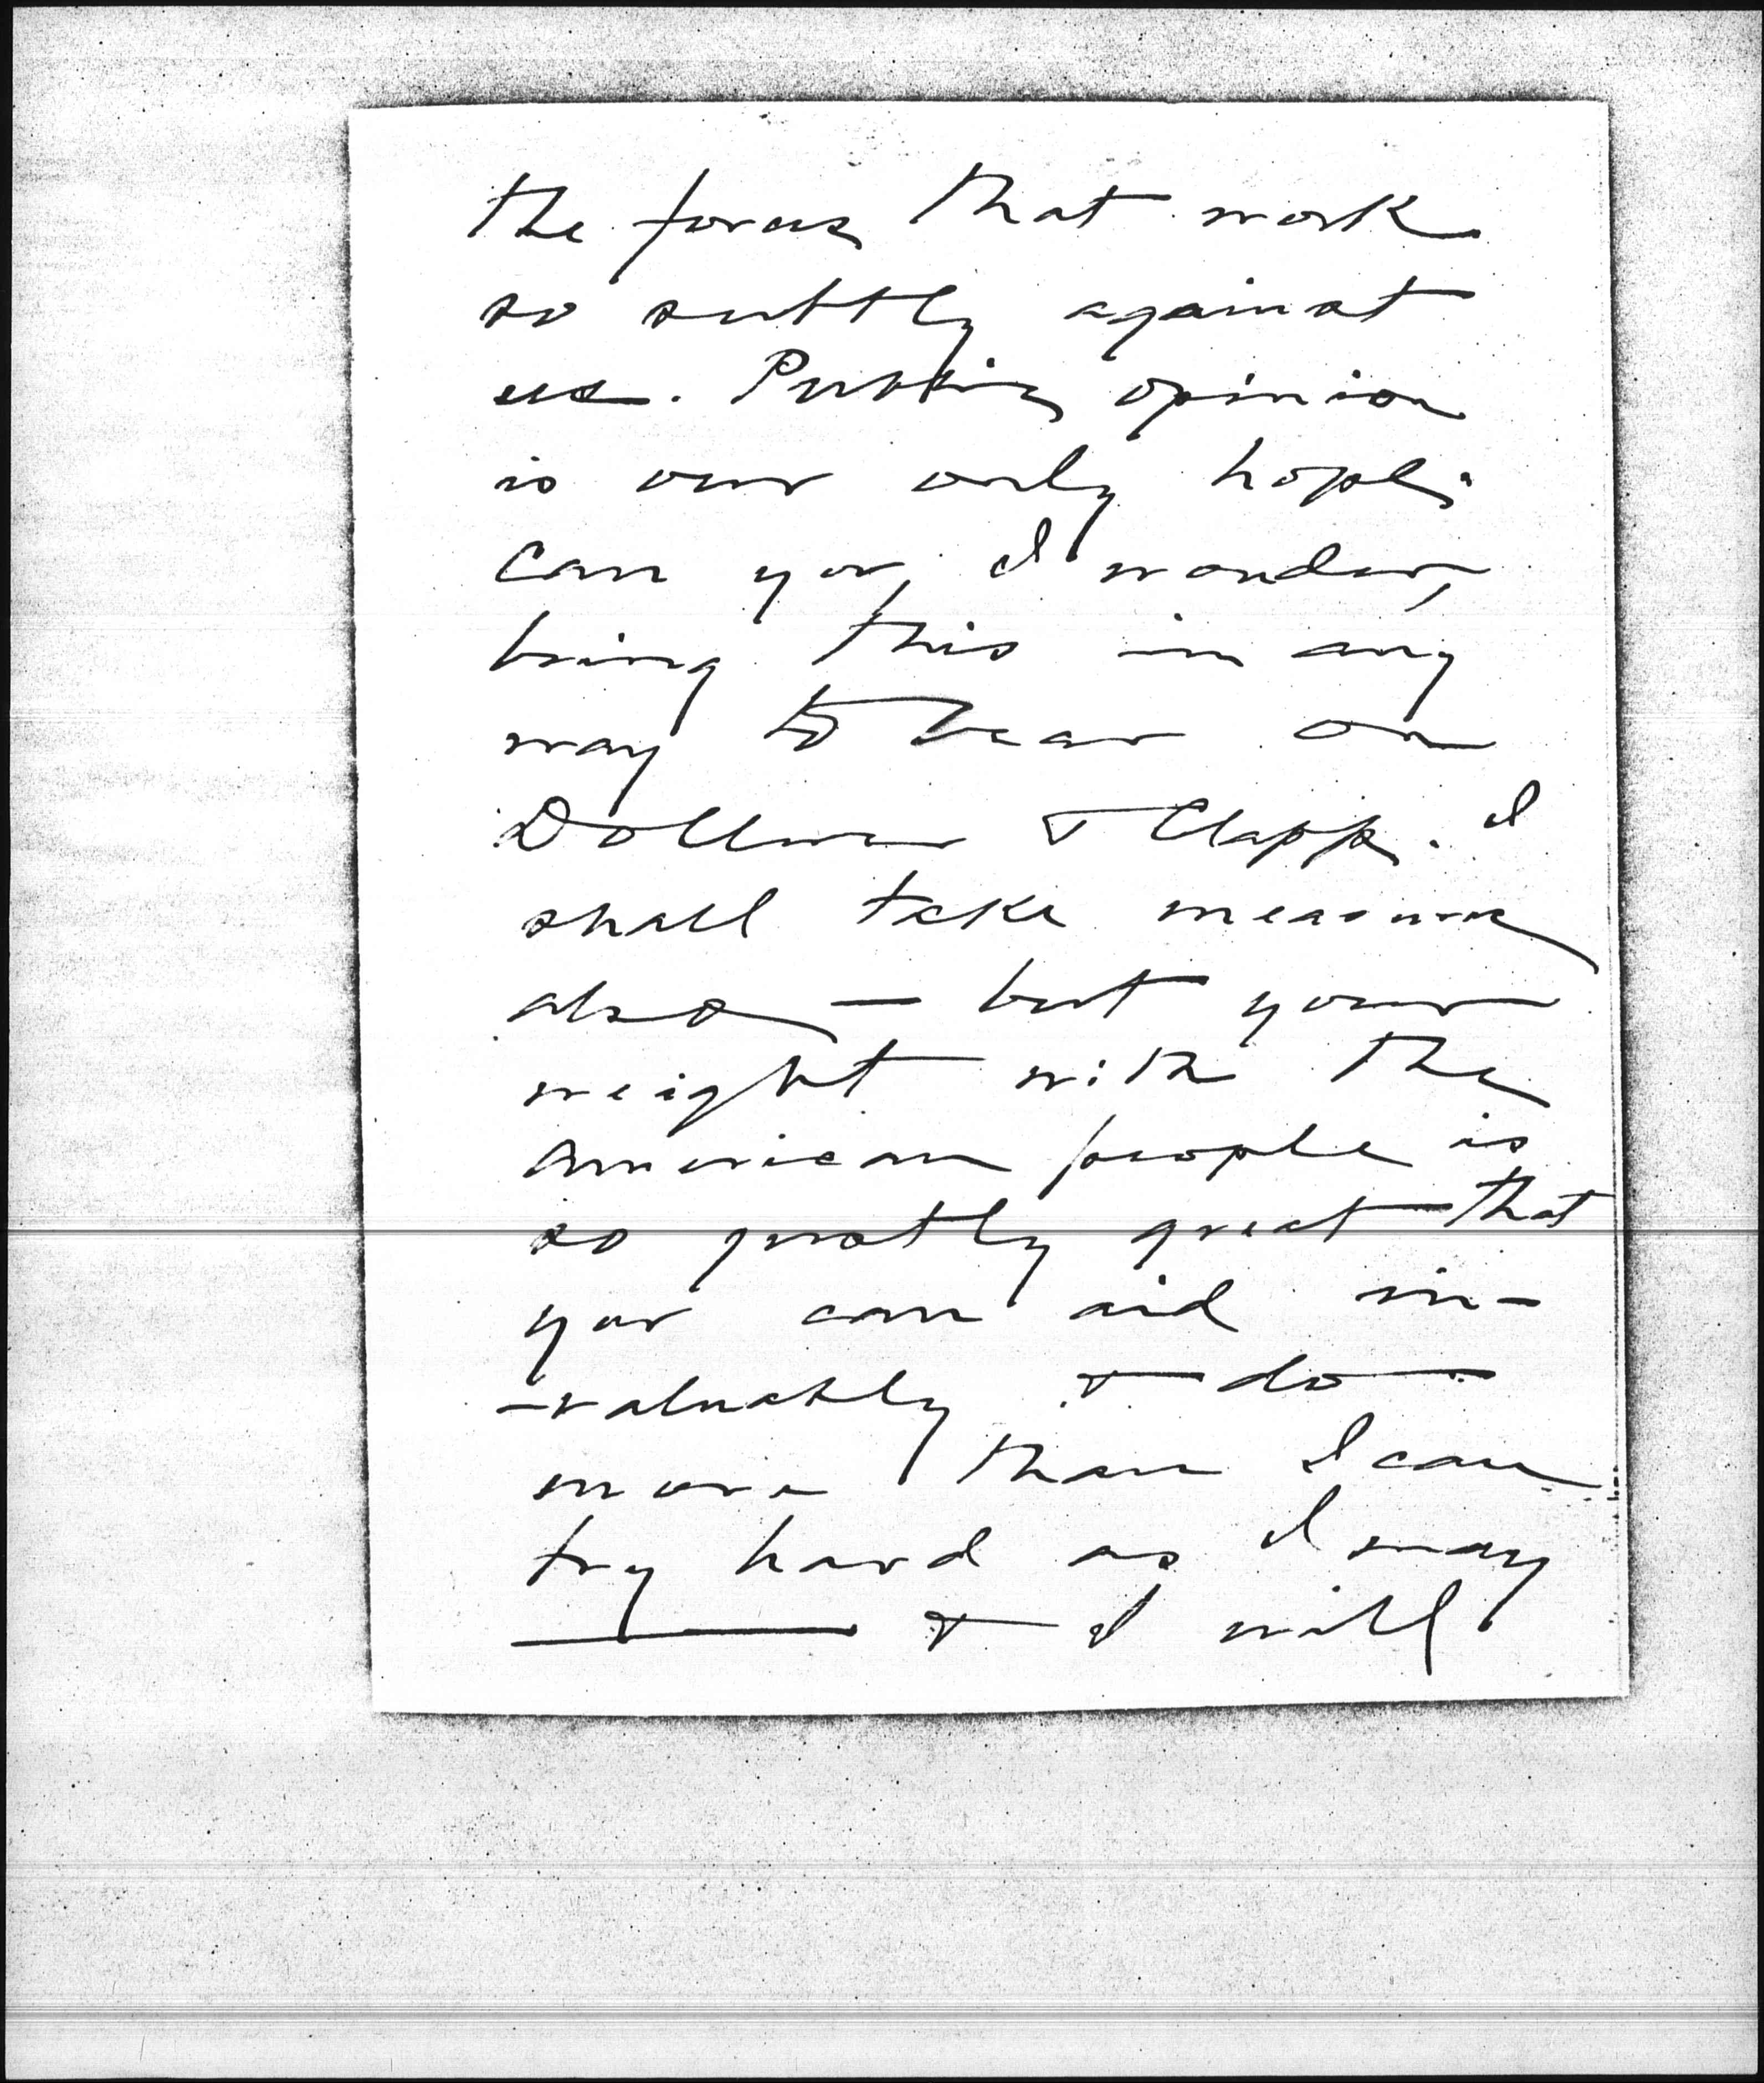 the forces that work
so subtly against
us. Public opinion
is our only hope.
Can you, I wonder,
bring this in any
way to bear on
Dolliver & Clapp. I
shall take measures
also — but your
weight with the
American people is
so justly great that
you can aid in-
-valuably & do
more than I can
try hard as I may
—— & I will